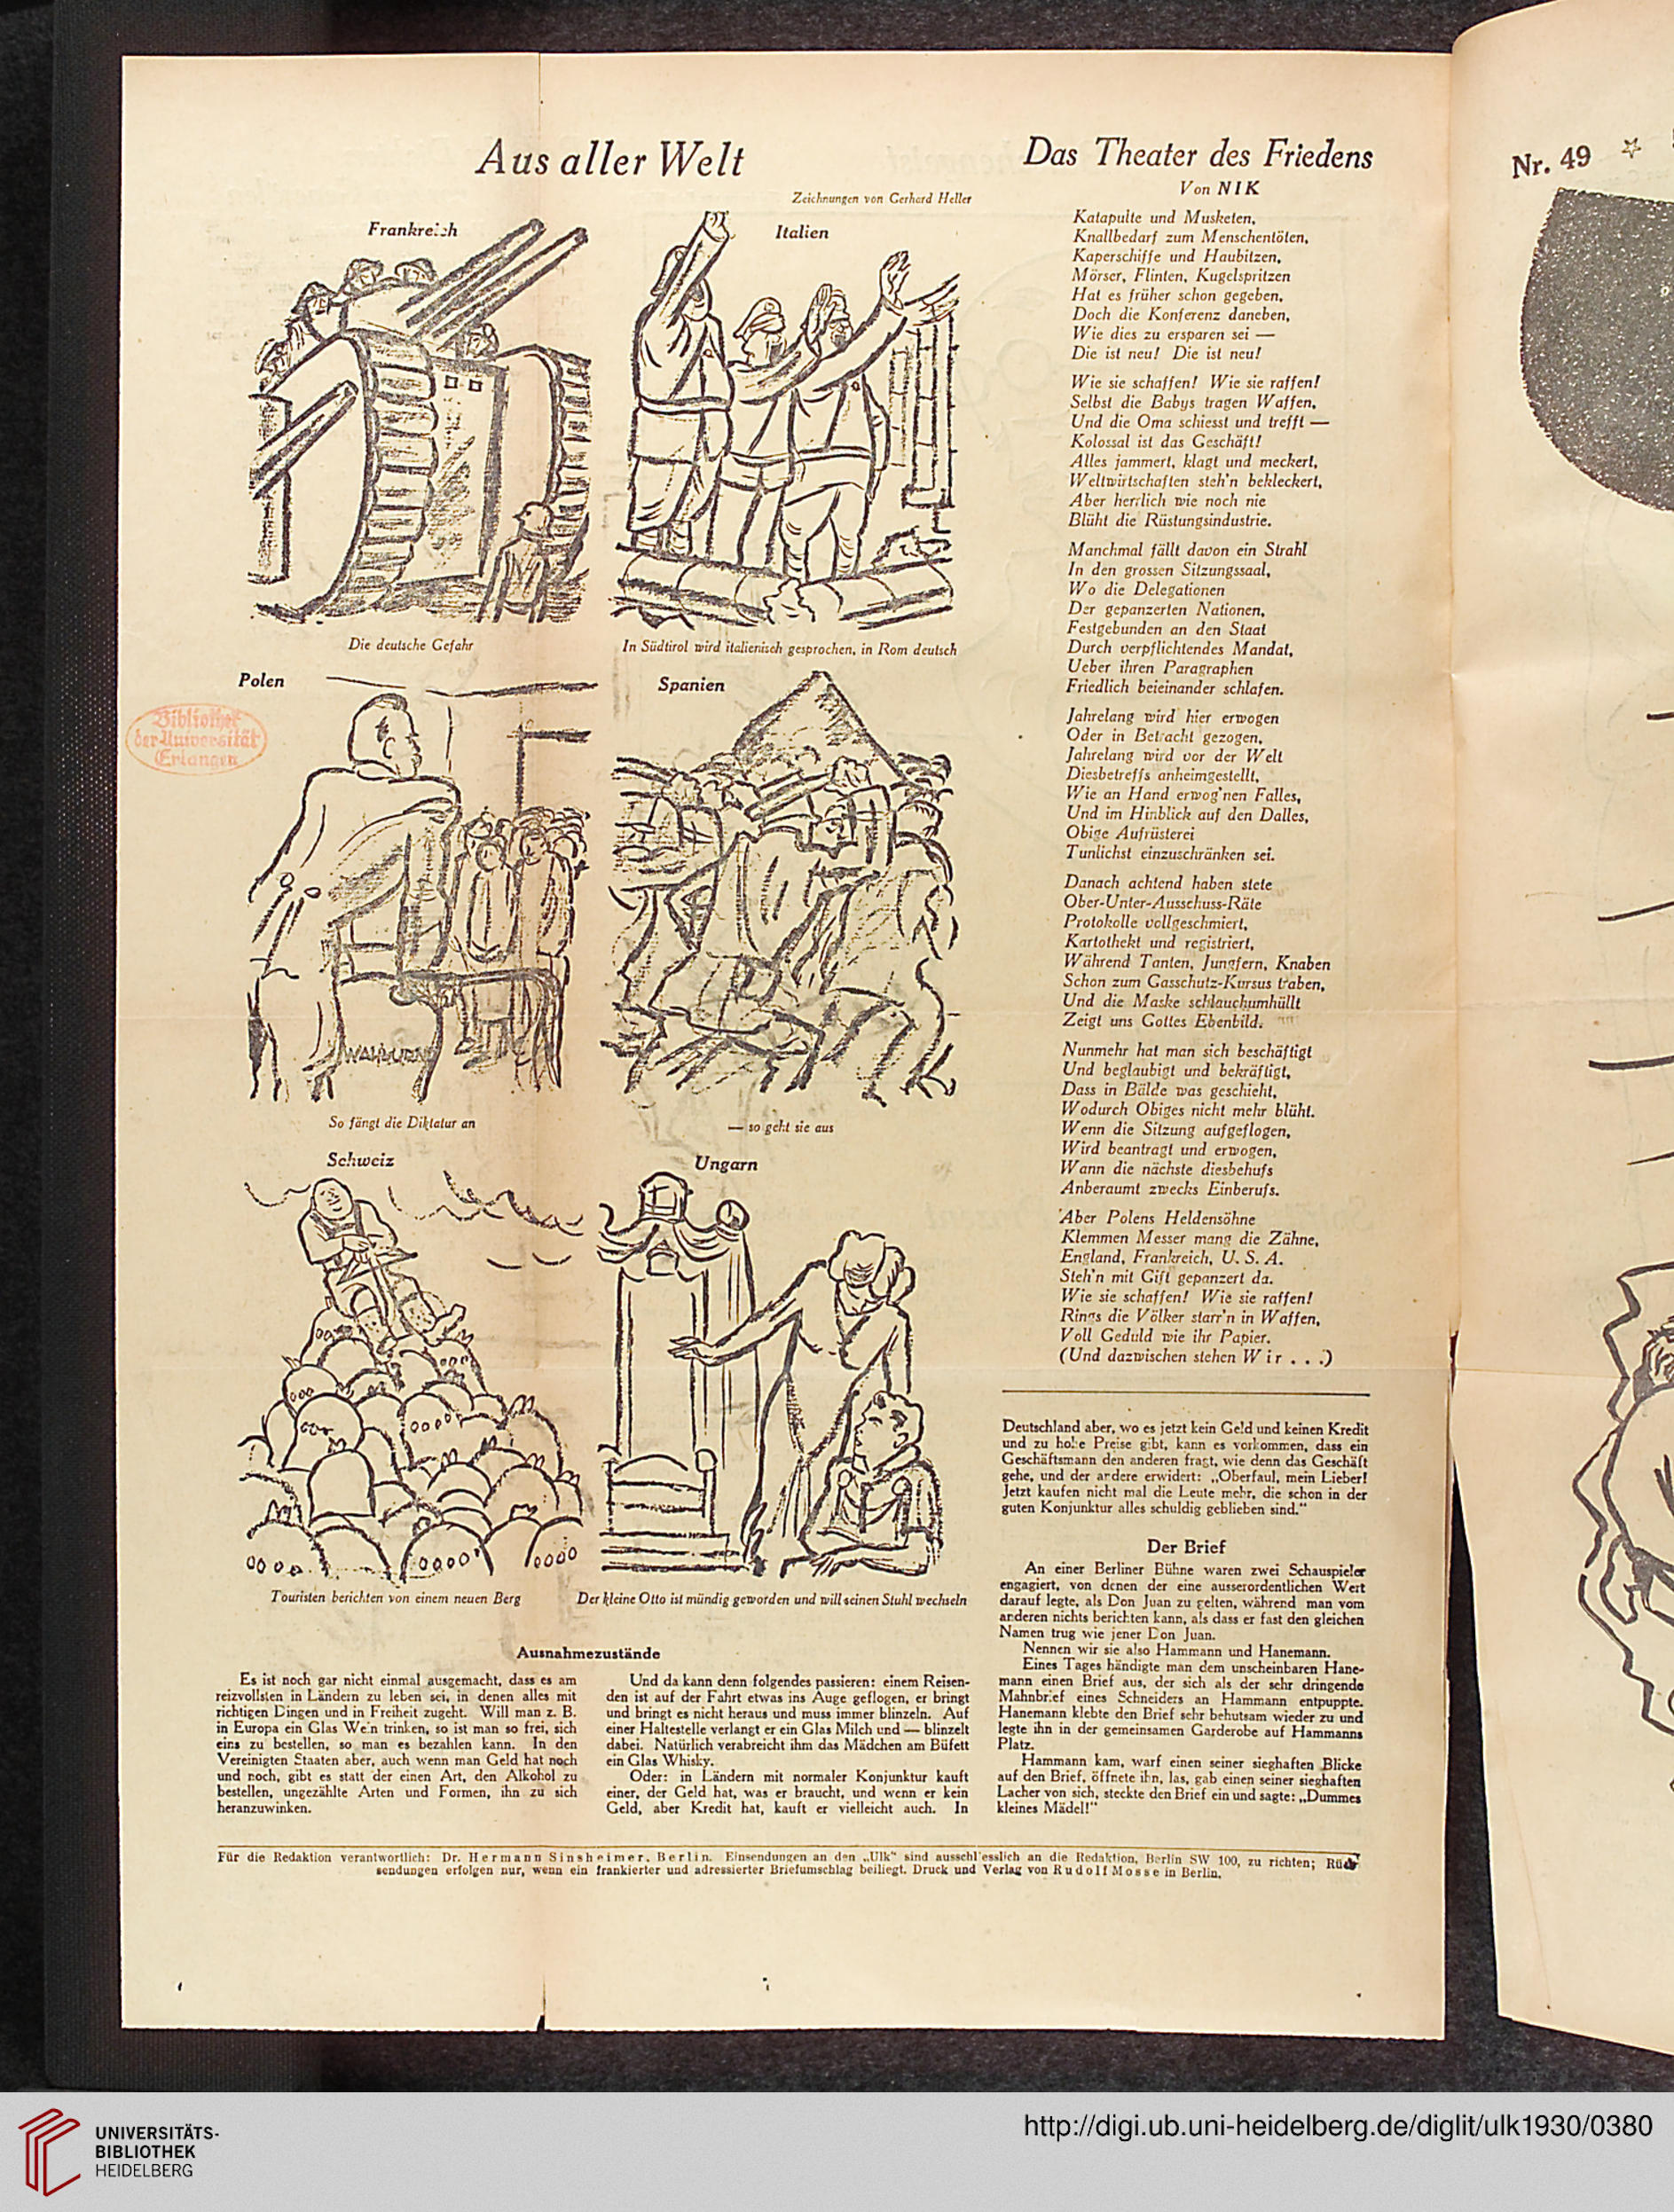 Aus aller Welt
Zeichnungen von Gerhard Heller
Frankreich
Italien
Die deutsche Gefahr
In Südtirol wird italienisch gesprochen, in Rom deutsch
Polen
Spanien
WAHLURNE
So fängt die Diktatur an
— so geht sie aus
Schweiz
Ungarn
Touristen berichten von einem neuen Berg
Der kleine Otto ist mündig geworden und will seinen Stuhl wechseln
Bibliothek
der Universität
Erlangen
Das Theater des Friedens
Von NIK
Katapulte und Musketen,
Knallbedarf zum Menschentöten,
Kaperschiffe und Haubitzen,
Mörser, Flinten, Kugelspritzen
Hat es früher schon gegeben,
Doch die Konferenz daneben,
Wie dies zu ersparen sei —
Die ist neu! Die ist neu!
Wie sie schaffen! Wie sie raffen!
Selbst die Babys tragen Waffen,
Und die Oma schiesst und trefft —
Kolossal ist das Geschäft!
Alles jammert, klagt und meckert,
Weltwirtschaften steh'n bekleckert,
Aber herrlich wie noch nie
Blüht die Rüstungsindustrie.
Manchmal fällt davon ein Strahl
In den grossen Sitzungssaal,
Wo die Delegationen
Der gepanzerten Nationen,
Festgebunden an den Staat
Durch verpflichtendes Mandat,
Ueber ihren Paragraphen
Friedlich beieinander schlafen.
Jahrelang wird hier erwogen
Oder in Betracht gezogen,
Jahrelang wird vor der Welt
Diesbetreffs anheimgestellt,
Wie an Hand erwog'nen Falles,
Und im Hinblick auf den Dalles,
Obige Aufrüsterei
Tunlichst einzuschränken sei.
Danach achtend haben stete
Ober-Unter-Ausschuss-Räte
Protokolle vollgeschmiert,
Kartothekt und registriert,
Während Tanten, Jungfern, Knaben
Schon zum Gasschutz-Kursus traben,
Und die Maske schlauchumhüllt
Zeigt uns Gottes Ebenbild.
Nunmehr hat man sich beschäftigt
Und beglaubigt und bekräftigt,
Dass in Bälde was geschieht,
Wodurch Obiges nicht mehr blüht.
Wenn die Sitzung aufgeflogen,
Wird beantragt und erwogen,
Wann die nächste diesbehufs
Anberaumt zwecks Einberufs.
Aber Polens Heldensöhne
Klemmen Messer mang die Zähne,
England, Frankreich, U. S. A.
Steh'n mit Gift gepanzert da.
Wie sie schaffen! Wie sie raffen!
Rings die Völker starr'n in Waffen,
Voll Geduld wie ihr Papier.
(Und dazwischen stehen Wir . . .)
Ausnahmezustände
Es ist noch gar nicht einmal ausgemacht, dass es am
reizvollsten in Ländern zu leben sei, in denen alles mit
richtigen Dingen und in Freiheit zugeht. Will man z. B.
in Europa ein Glas Wein trinken, so ist man so frei, sich
eins zu bestellen, so man es bezahlen kann. In den
Vereinigten Staaten aber, auch wenn man Geld hat noch
und noch, gibt es statt der einen Art, den Alkohol zu
bestellen, ungezählte Arten und Formen, ihn zu sich
heranzuwinken.
Und da kann denn folgendes passieren: einem Reisen-
den ist auf der Fahrt etwas ins Auge geflogen, er bringt
und bringt es nicht heraus und muss immer blinzeln. Auf
einer Haltestelle verlangt er ein Glas Milch und — blinzelt
dabei. Natürlich verabreicht ihm das Mädchen am Büfett
ein Glas Whisky.
Oder: in Ländern mit normaler Konjunktur kauft
einer, der Geld hat, was er braucht, und wenn er kein
Geld, aber Kredit hat, kauft er vielleicht auch. In
Deutschland aber, wo es jetzt kein Geld und keinen Kredit
und zu hohe Preise gibt, kann es vorkommen, dass ein
Geschäftsmann den anderen fragt, wie denn das Geschäft
gehe, und der andere erwidert: „Oberfaul, mein Lieber!
Jetzt kaufen nicht mal die Leute mehr, die schon in der
guten Konjunktur alles schuldig geblieben sind."
Der Brief
An einer Berliner Bühne waren zwei Schauspieler
engagiert, von denen der eine ausserordentlichen Wert
darauf legte, als Don Juan zu gelten, während man vom
anderen nichts berichten kann, als dass er fast den gleichen
Namen trug wie jener Don Juan.
Nennen wir sie also Hammann und Hanemann.
Eines Tages händigte man dem unscheinbaren Hane-
mann einen Brief aus, der sich als der sehr dringende
Mahnbrief eines Schneiders an Hammann entpuppte.
Hanemann klebte den Brief sehr behutsam wieder zu und
legte ihn in der gemeinsamen Garderobe auf Hammanns
Platz.
Hammann kam, warf einen seiner sieghaften Blicke
auf den Brief, öffnete ihn, las, gab einen seiner sieghaften
Lacher von sich, steckte den Brief ein und sagte: „Dummes
kleines Mädel!"
Für die Redaktion verantwortlich: Dr. Hermann Sinsheimer, Berlin. Einsendungen an den „Ulk" sind ausschliesslich an die Redaktion, Berlin SW 100, zu richten; Rück-
sendungen erfolgen nur, wenn ein frankierter und adressierter Briefumschlag beiliegt. Druck und Verlag von Rudolf Mosse in Berlin.
Nr. 49
UNIVERSITÄTS-
BIBLIOTHEK
HEIDELBERG
http://digi.ub.uni-heidelberg.de/diglit/ulk1930/0380